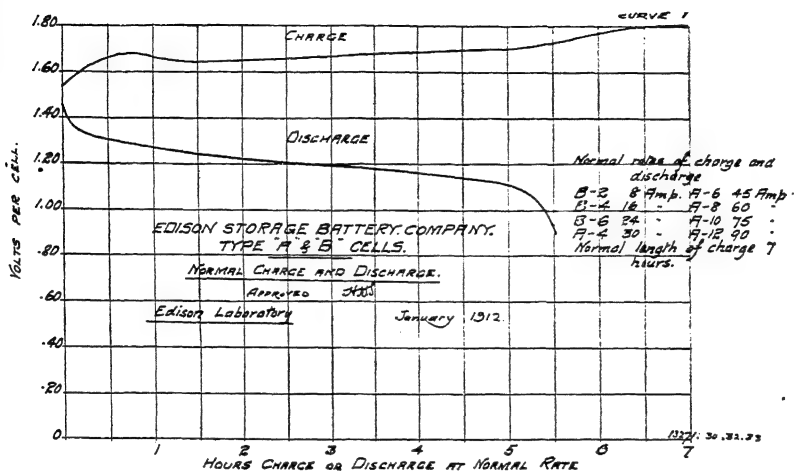 CURVE 1
1.80
1.60
1.40
1.20
1.00
.80
.60
.40
.20
0
VOLTS PER CELL.
CHARGE
DISCHARGE
Normal rates of charge and
discharge
B-2 8 Amp. A-6 45 Amp.
B-4 16 " A-8 60 "
B-6 24 " A-10 75 "
A-4 30 " A-12 90 "
Normal length of charge 7
hours.
EDISON STORAGE BATTERY COMPANY.
TYPE "A" & "B" CELLS.
NORMAL CHARGE AND DISCHARGE.
APPROVED
Edison Laboratory
January 1912.
1 2 3 4 5 6 7
HOURS CHARGE OR DISCHARGE AT NORMAL RATE